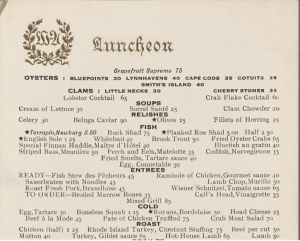 Luncheon
Grapefruit Supreme 75
OYSTERS : BLUEPOINTS 30 LYNNHAVENS 40 CAPE CODS 35 COTUITS 35
SMITH'S ISLAND 40
CLAMS : LITTLE NECKS 30 CHERRY STONES 35
Lobster Cocktail 65 Crab Flake Cocktail 60
SOUPS
Cream of Lettuce 30 Sorrel Santé 25 Clam Chowder 20
RELISHES
Celery 30 Beluga Caviar 90 ★Olives 25 Fillets of Herring 25
FISH
★Terrapin, Newburg 3 50 Buck Shad 75 ★Planked Roe Shad 3.00 Half 2 50
★English Sole 1 25 Whitebait 40 Brook Trout 40 Fried Oyster Crabs 65
Special Finnan Haddie, Maitre d'Hôtel 60 Bluefish au gratin 40
Striped Bass, Meunière 50 Perch and Eels, Matelotte 35 Codfish, Norvegienne 35
Fried Smelts, Tartare sauce 40
Egg, Comstable 30
ENTREES
READY—Fish Stew des Pêcheurs 45 Ramisole of Chicken, Gourmet sauce 40
Sauerbraten with Noodles 45 Lamb Chop, Murillo 50
Roast Fresh Pork, Bruxelloise 45 Wiener Schnitzel, Tomato sauce 65
TO ORDER—Broiled Marrow Bones 35 Calf's Head, Vinaigrette 35
Mixed Grill 85
COLD
Egg, Tartare 30 Boneless Squab 1 25 Borsine, Bordelaise 30 Head Cheese 25
Beef à la Mode 45 Pate of Chicken Truffled 75 Crab Meat Salad 70
ROAST
Chicken (half) 1 25 Rhode Island Turkey, Chestnut Stuffing 75 Beef 40
Mutton 40 Turkey, Giblet sauce 65 Hot-House Lamb 60 Lamb 50